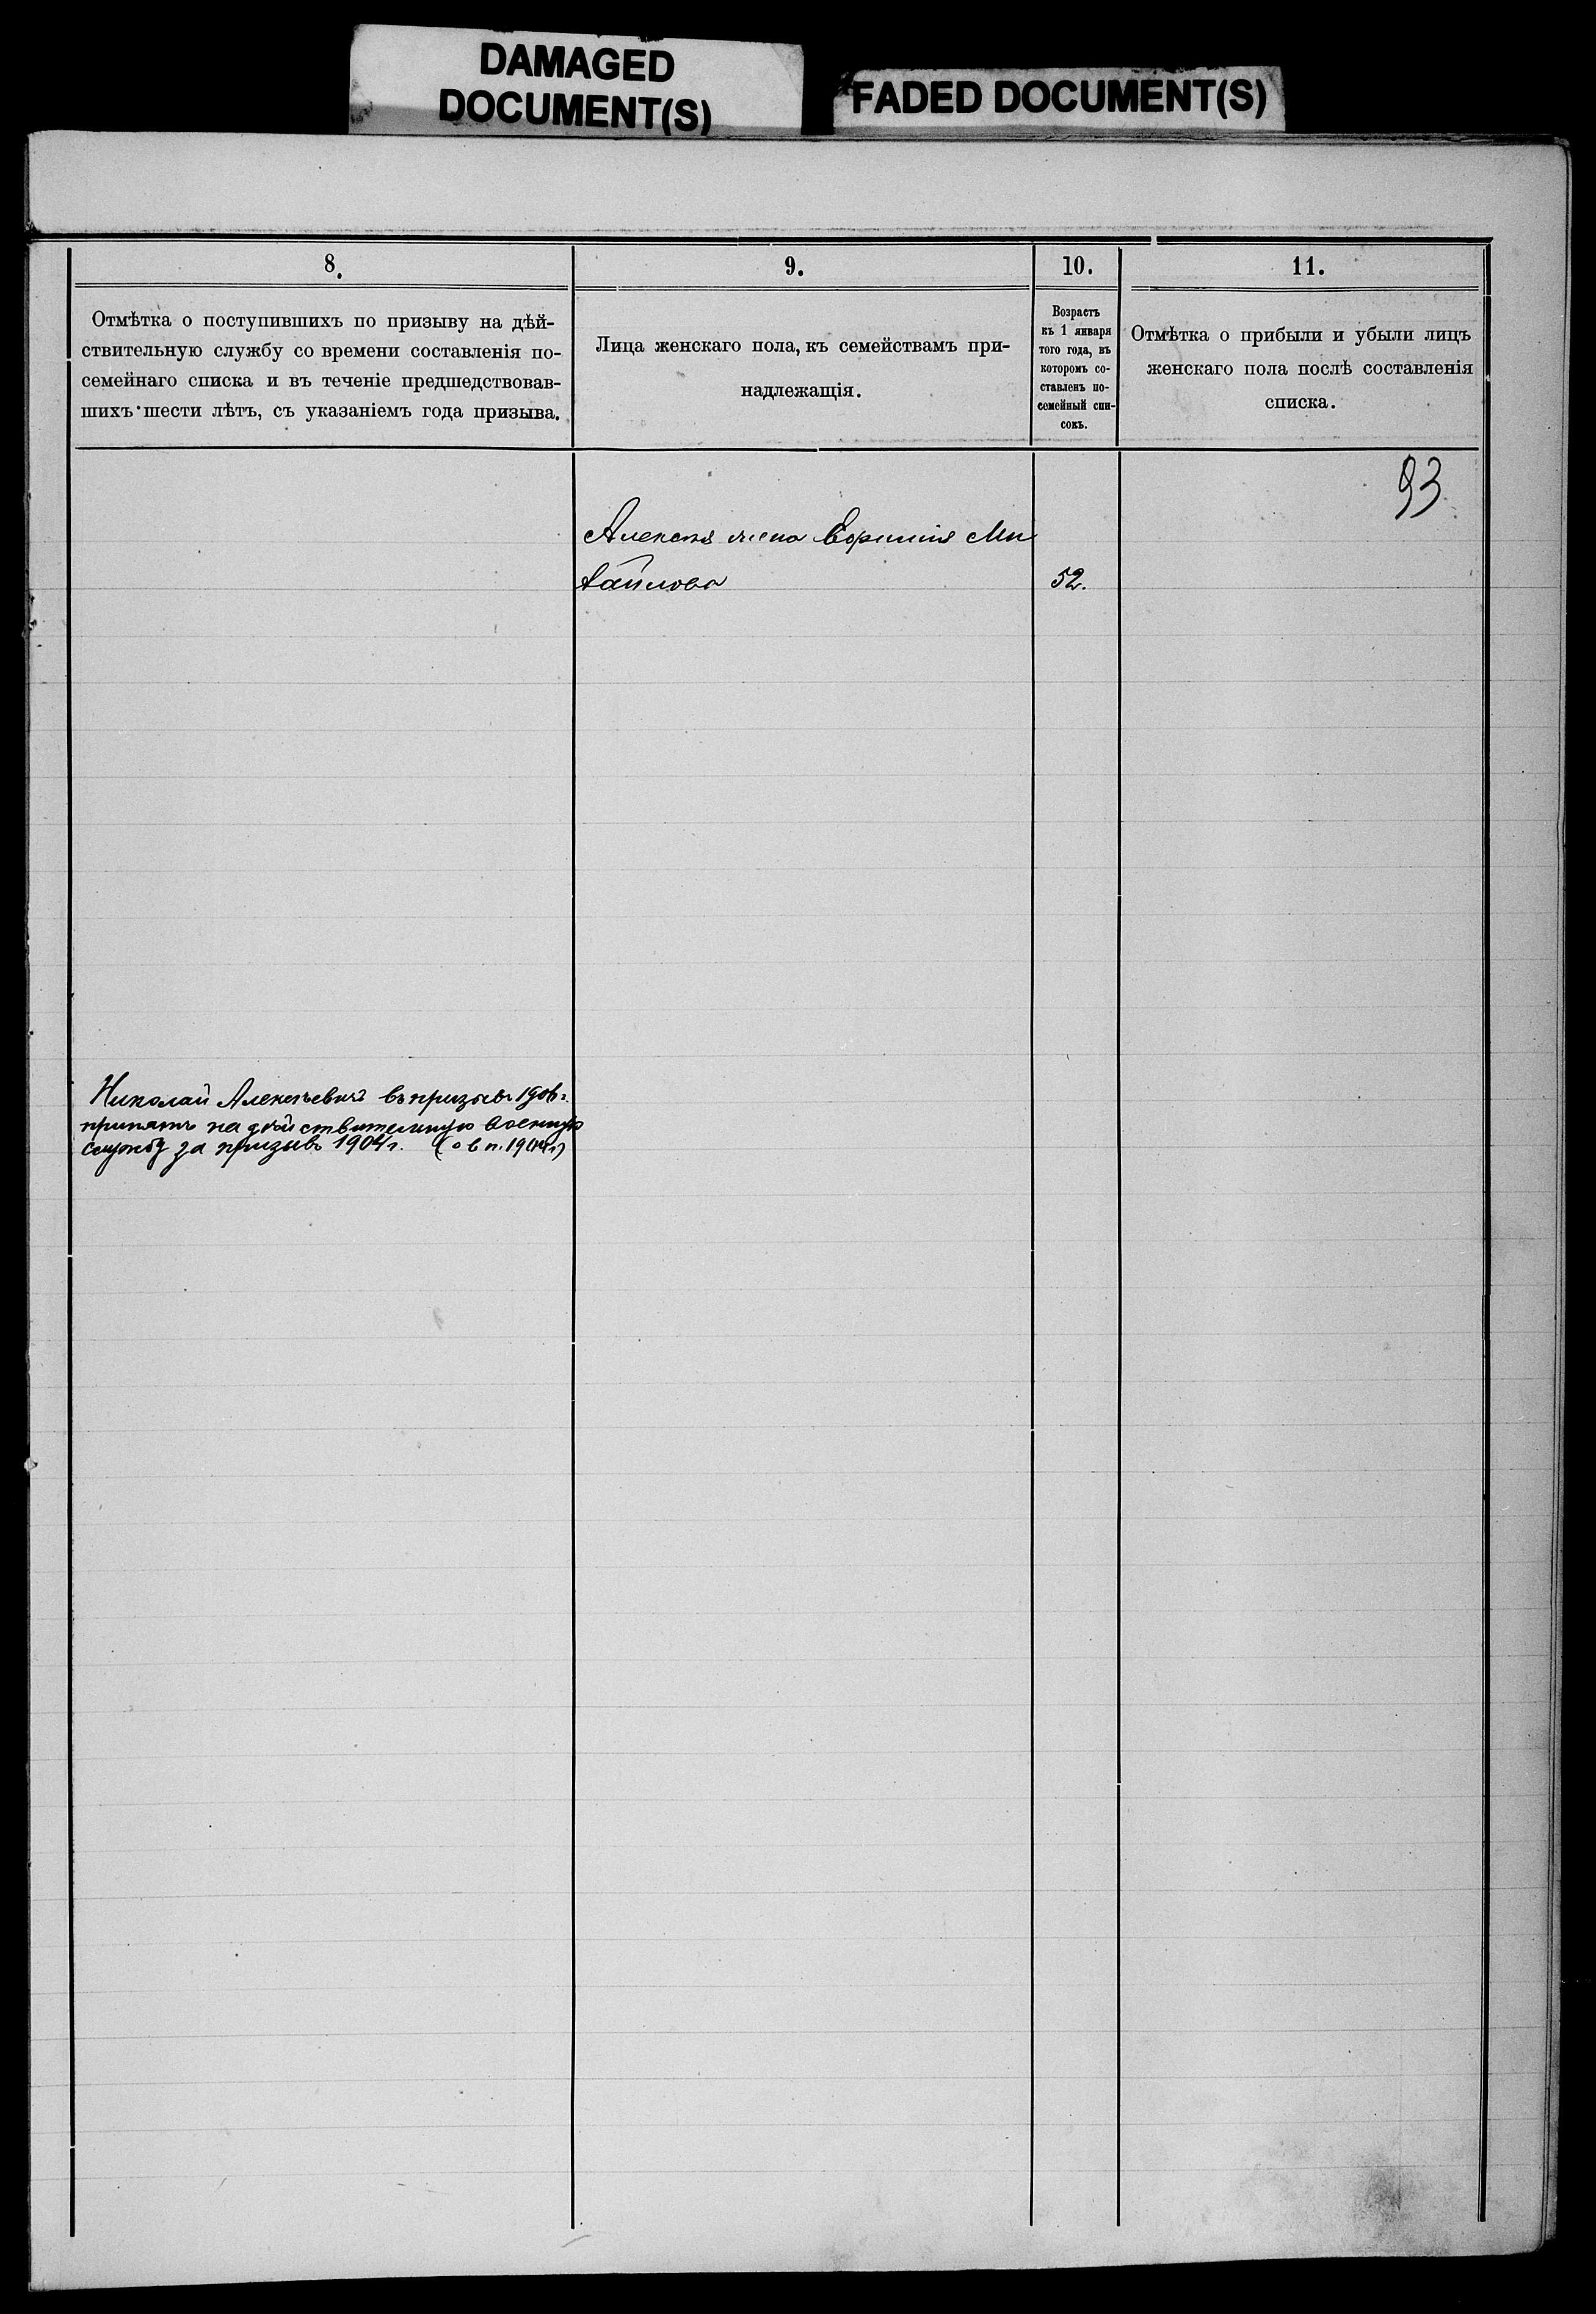 DAMAGED
DOCUMENT(S)
FADED DOCUMENT(S)
8.
Отмѣтка о поступившихъ по призыву на дѣй-
ствительную службу со времени составленія по-
семейнаго списка и въ теченіе предшедствовав-
шихъ шести лѣтъ, съ указаніемъ года призыва.
9.
Лица женскаго пола, къ семействамъ при-
надлежащія.
10.
Возрастъ
къ 1 января
того года, въ
которомъ со-
ставленъ по-
семейный спи-
сокъ.
11.
Отмѣтка о прибыли и убыли лицъ
женскаго пола послѣ составленія
списка.
93
Алексѣя жена Евфимія Ми
хайлова
52.
Николай Алексѣевичъ въ призывъ 1906 г.
принятъ на дѣйствительную военную
службу за призывъ 1904 г.